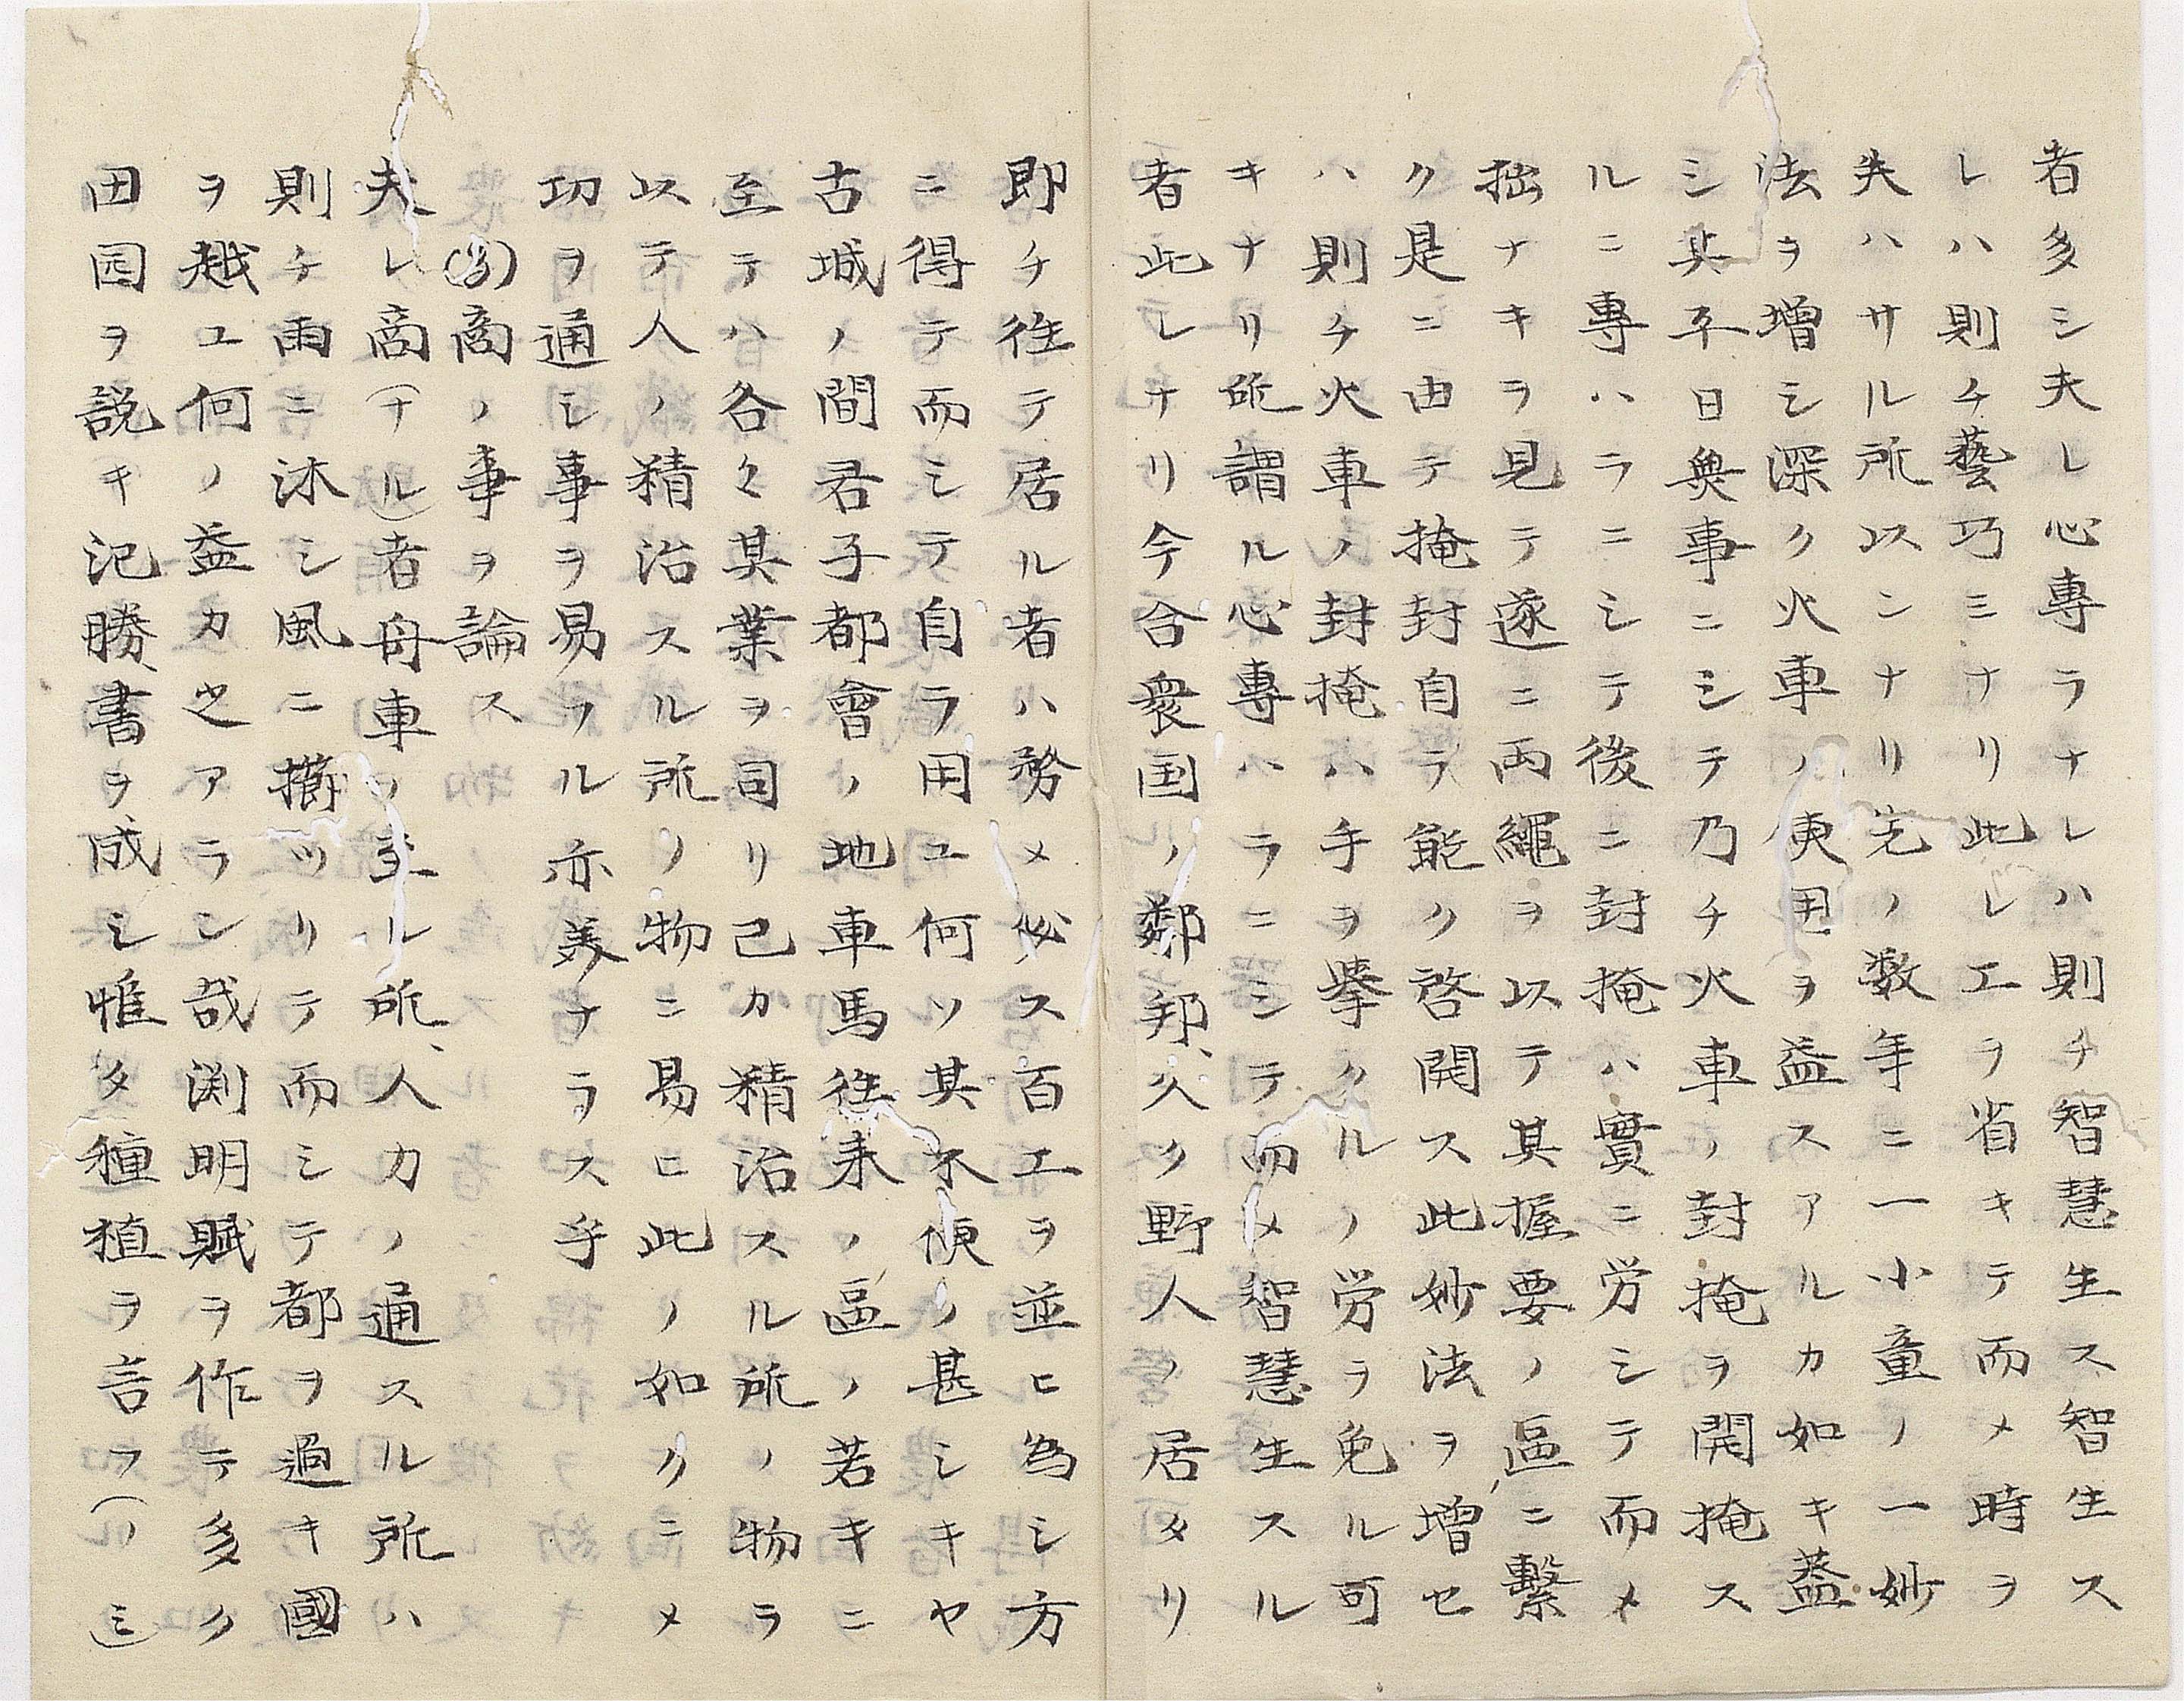 者多シ夫レ心專ラナレハ則チ智慧生ス智生ス
レハ則チ藝巧ミナリ此レ工ヲ省キテ而メ時ヲ
失ハサル所以ンナリ先ノ数年ニ一小童ノ一妙
法ヲ増シ深ク火車ノ使用ヲ益スアルカ如キ蓋
シ其平日奥事ニシテ乃チ火車ノ封掩ヲ開掩ス
ルニ專ハラニシテ後ニ封掩ハ實ニ労シテ而メ
拙ナキヲ見テ遂ニ両繩ヲ以テ其握要ノ區ニ繋
ク是ニ由テ掩封自ラ能ク啓開ス此妙法ヲ増セ
ハ則チ火車ノ封掩ハ手ヲ挙クルノ労ヲ免ル可
キナリ所謂ル心專ハラニシテ而メ智慧生スル
者此レナリ今合衆国ノ鄰邦、久ク野人ノ居タリ
即チ往テ居ル者ハ務メ必ス百工ヲ並ヒ為シ方
ニ得テ而シテ自ラ用ユ何ソ其不便ノ甚シキヤ
古城ノ間君子都會ノ地車馬往来ノ區ノ若キニ
至テハ各々其業ヲ司リ己カ精治スル所ノ物ラ
以テ人ノ精治スル所ノ物ニ易ヒ此ノ如クニメ
功ヲ通シ事ヲ易フル亦美ナラス乎
商ノ事ヲ論ス
夫レ商(ナル)者舟車ノ至ル所、人カノ通スル所ハ
則チ雨ニ沐シ風ニ擳ツリテ而シテ都ヲ過キ國
ヲ越ユ何ノ益カ之アラン哉渕明賦ヲ作テ多ク
田园ヲ説キ氾勝、書ヲ成シ惟タ種植ヲ言フ(ノミ)